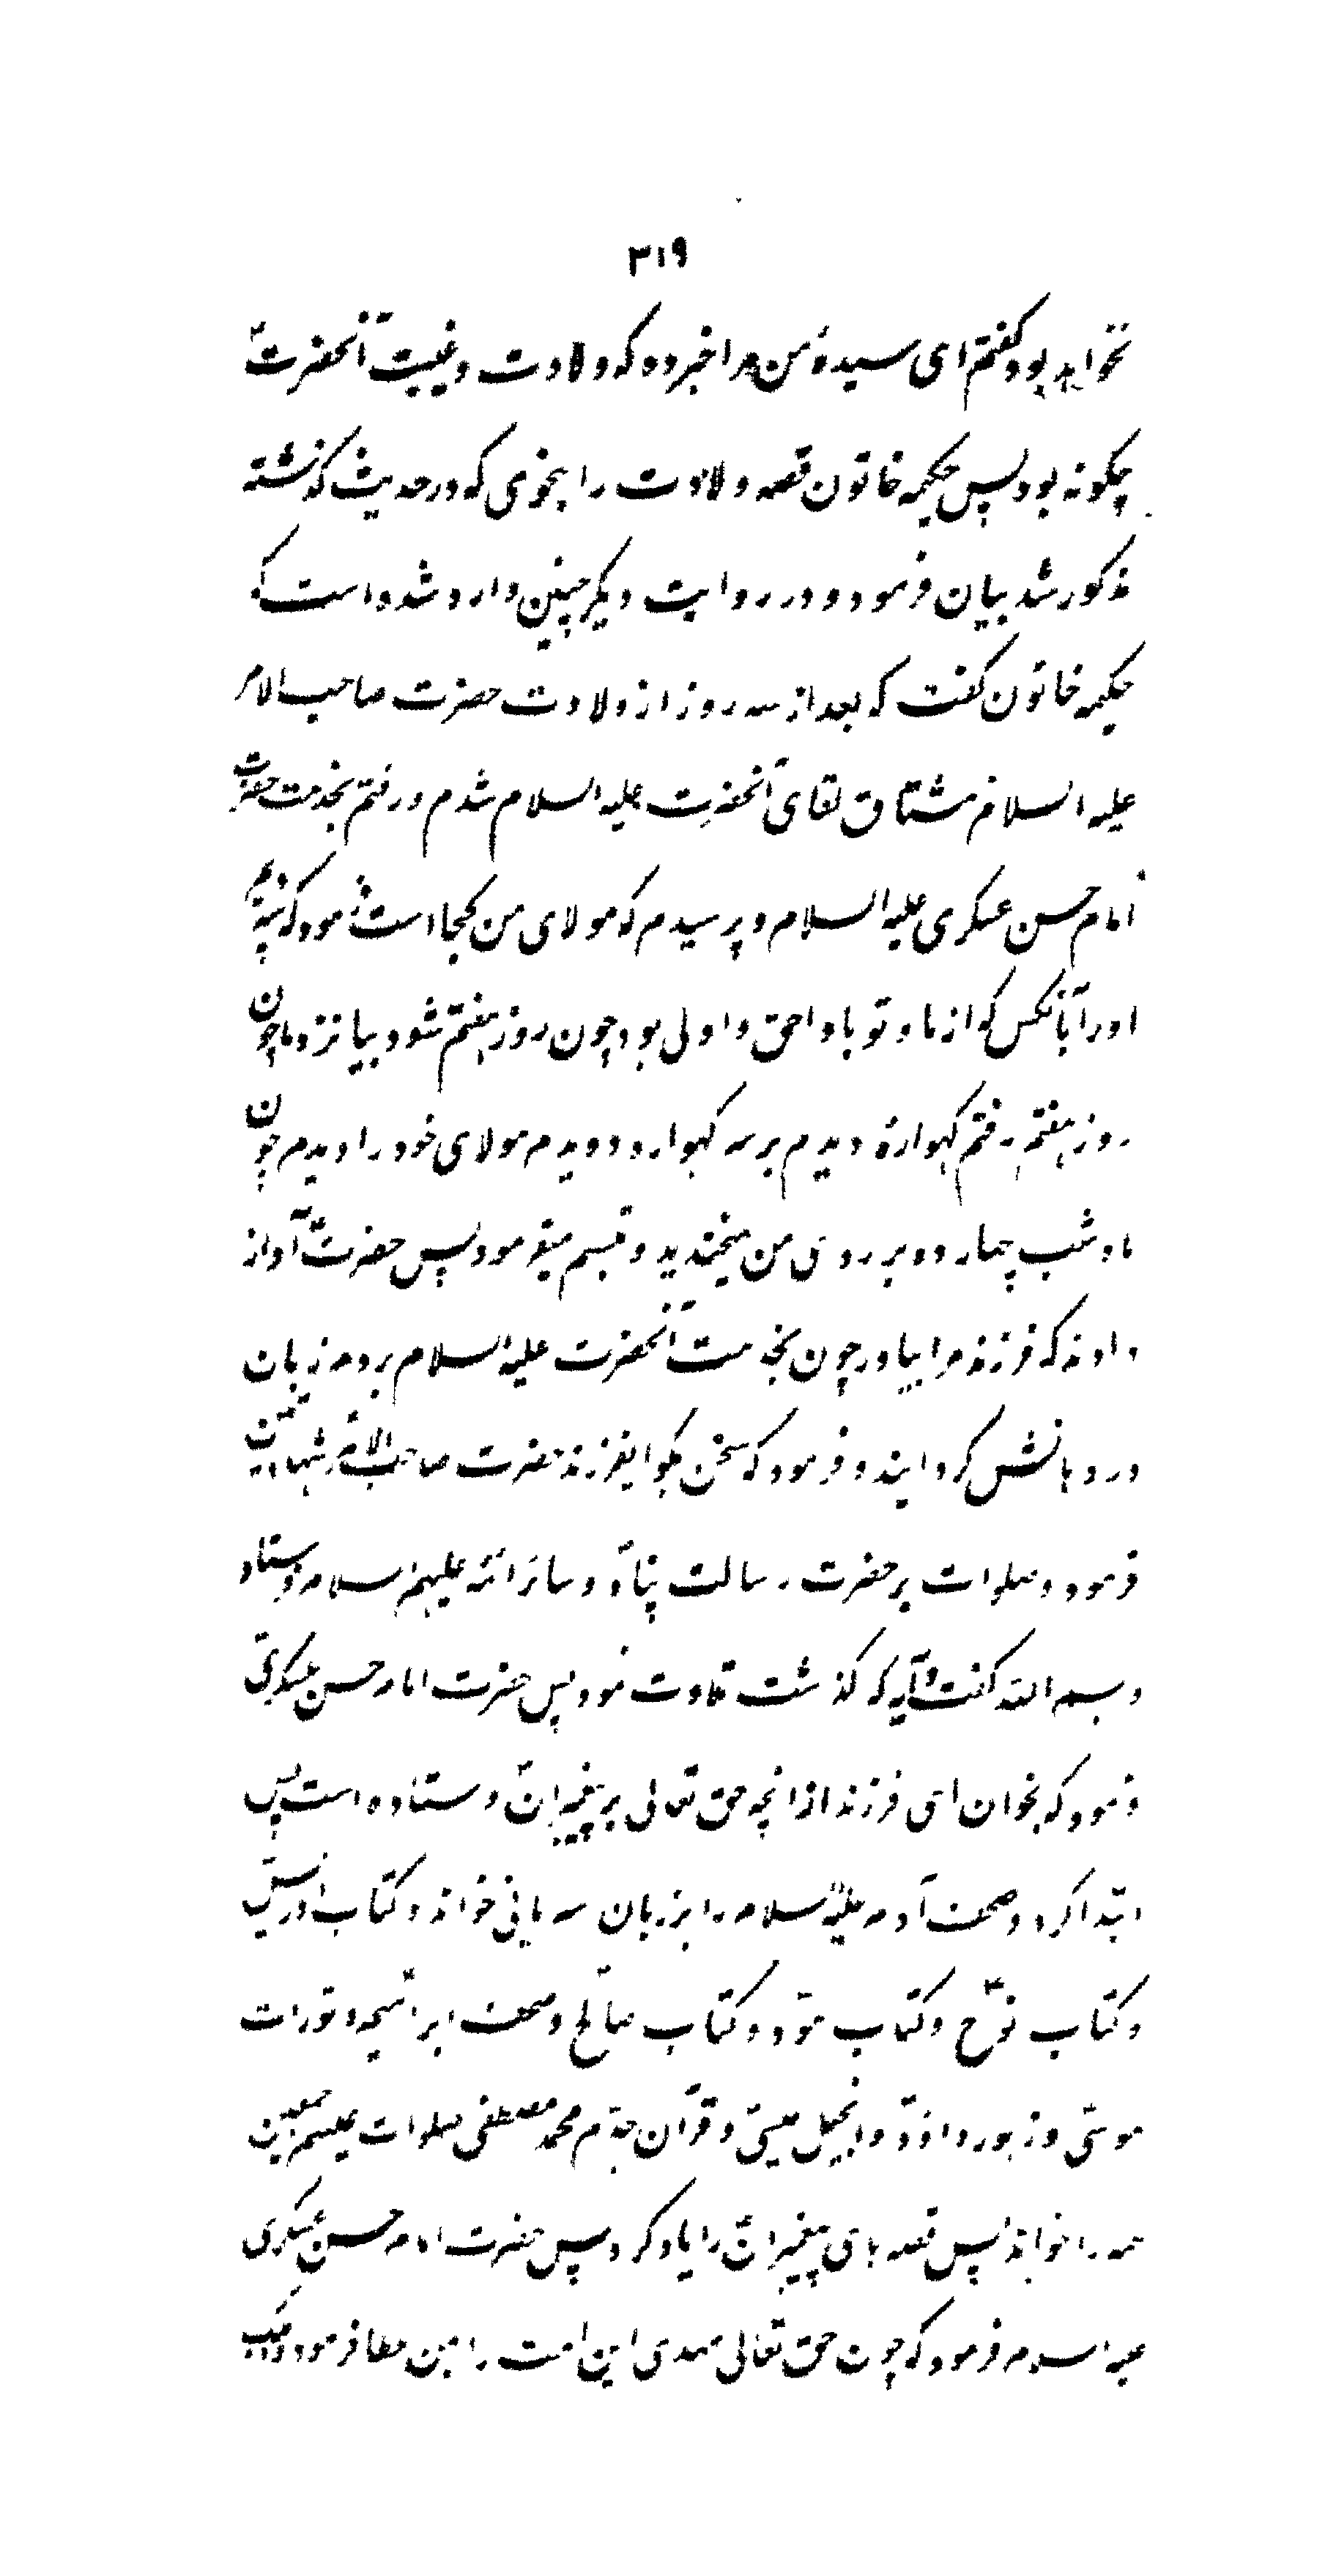 ۳۱۹
نخواهد بود گفتم ای سیدهٔ من مرا خبر ده که ولادت و غیبت آنحضرتؑ
چگونه بود پس حکیمه خاتون قصه ولادت را بنحوی که در حدیث گذشته
مذکور شد بیان فرمود و در روایت دیگر چنین وارد شده است که
حکیمه خاتون گفت که بعد از سه روز از ولادت حضرت صاحب الامر
علیه السلام مشتاق لقای آنحضرت علیه السلام شدم و رفتم بخدمت حضرت
امام حسن عسکری علیه السلام و پرسیدم که مولای من کجا است فرمود که سپردم
او را بآنکس که از ما و تو باو احق و اولی بود چون روز هفتم شود بیا نزد ما چون
روز هفتم رفتم گهوارهٔ دیدم بر سر گهواره دویدم مولای خود را دیدم چون
ماه شب چهارده بر روی من میخندید و تبسم میفرمود پس حضرتؑ آواز
دادند که فرزند مرا بیاور چون بخدمت آنحضرت علیه السلام بردم زبان
در دهانش گردانید و فرمود که سخن بگو ایفرزند حضرت صاحب الامرؑ شهادتین
فرمود و صلوات بر حضرت رسالت پناهؐ و سائر ائمه علیهم السلام فرستاد
و بسم الله گفت و آیه که گذشت تلاوت نمود پس حضرت امام حسن عسکریؑ
فرمود که بخوان ای فرزند از آنچه حق تعالی بر پیغمبرانؑ فرستاده است پس
ابتدا کرد و صحف آدم علیه السلام را بزبان سریانی خواند و کتاب ادریسؑ
و کتاب نوحؑ و کتاب هودؑ و کتاب صالحؑ و صحف ابراهیمؑ و تورات
موسیؑ و زبور داودؑ و انجیل عیسیؑ و قرآن جدم محمد مصطفی صلوات علیهم اجمعین
همه را خواند پس قصه های پیغمبرانؑ را یاد کرد پس حضرت امام حسن عسکری
علیه السلام فرمود که چون حق تعالی مهدی این امت را بمن عطا فرمود دو ملک